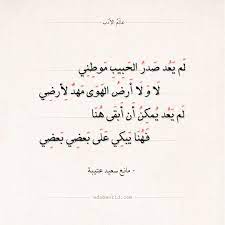 عالم الأدب
لَم يَعُد صَدرُ الحَبيبِ مَوطِني
لا وَلا أَرضُ الهَوَى مَهدٌ لِأَرضِي
لَم يَعُد يُمكِنُ أَن أَبقَى هُنَا
فَهُنَا يَبكِي عَلَى بَعضِي بَعضِي
- مانع سعيد عتيبة -
adabworld.com